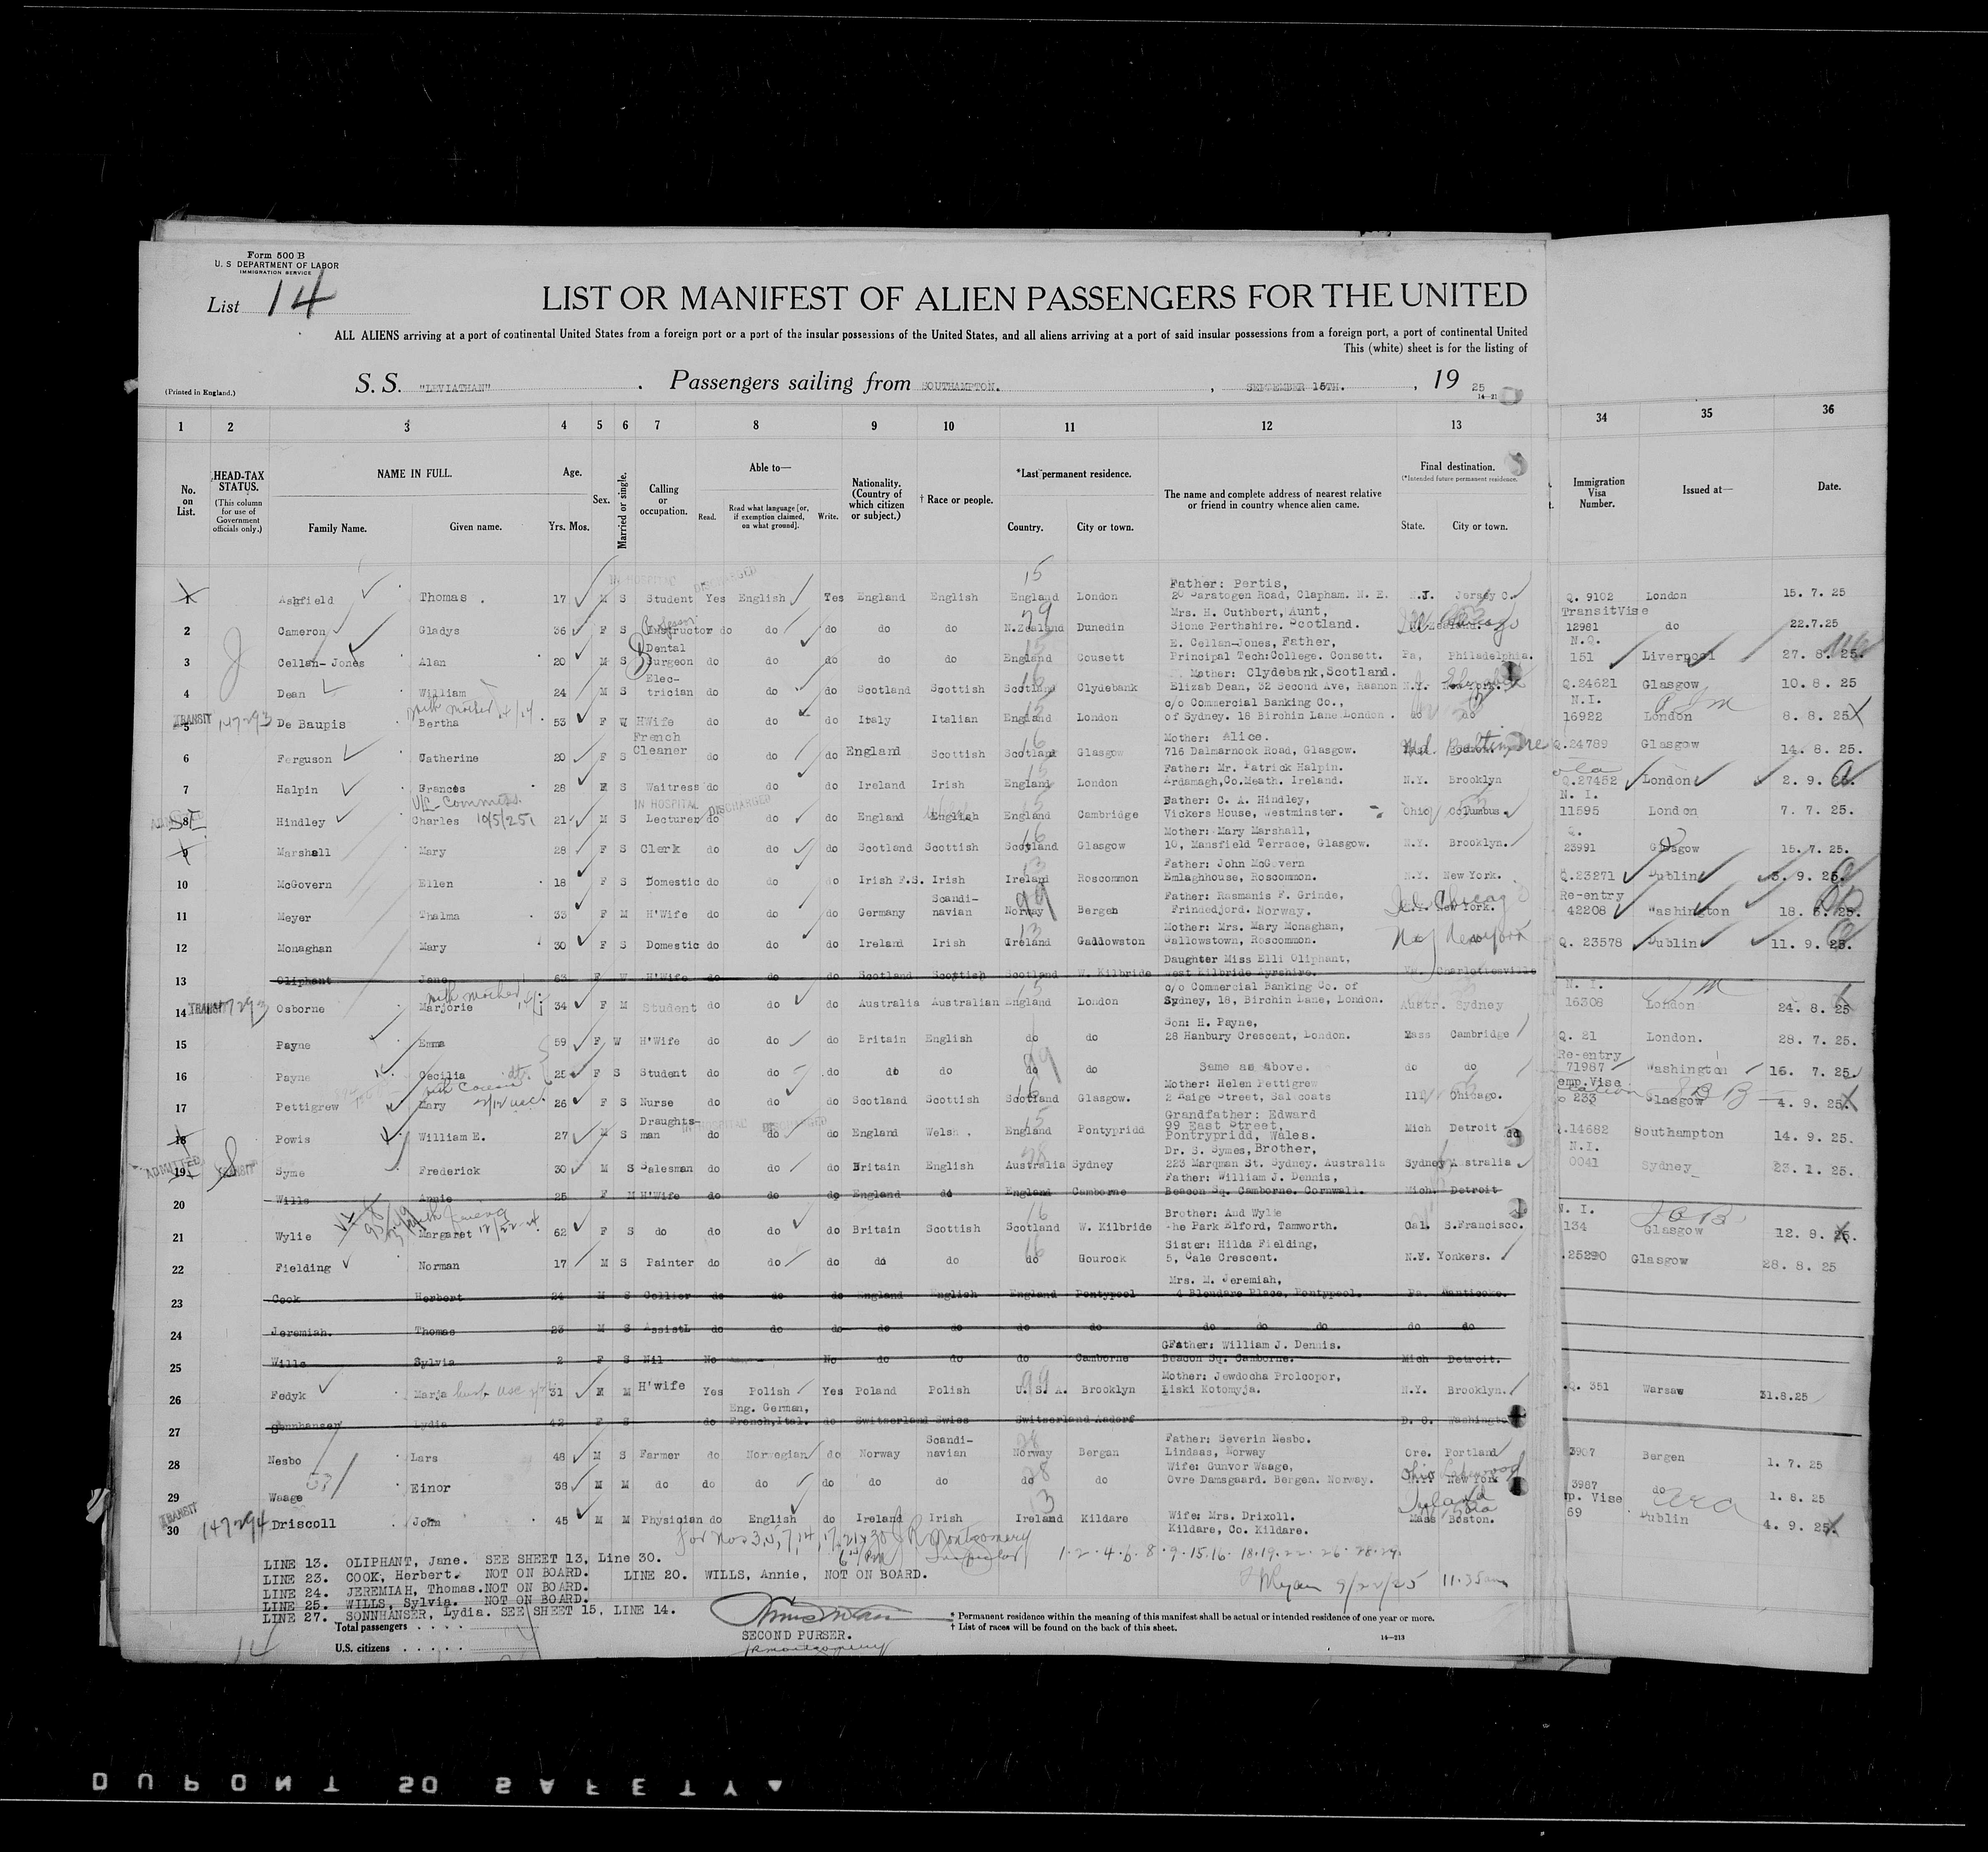 Form 500 B
U. S. DEPARTMENT OF LABOR
IMMIGRATION SERVICE
List 14
LIST OR MANIFEST OF ALIEN PASSENGERS FOR THE UNITED
ALL ALIENS arriving at a port of continental United States from a foreign port or a port of the insular possessions of the United States, and all aliens arriving at a port of said insular possessions from a foreign port, a port of continental United
This (white) sheet is for the listing of
(Printed in England.)
S. S. "LEVIATHAN" . Passengers sailing from SOUTHAMPTON. , SEPTEMBER 15TH. , 19 25
14—21
1 2 3 4 5 6 7 8 9 10 11 12 13 34 35 36
No. on List.
HEAD-TAX STATUS. (This column for use of Government officials only.)
NAME IN FULL. Family Name. Given name.
Age. Yrs. Mos.
Sex.
Married or single.
Calling or occupation.
Able to— Read. Read what language [or, if exemption claimed, on what ground]. Write.
Nationality. (Country of which citizen or subject.)
† Race or people.
*Last permanent residence. Country. City or town.
The name and complete address of nearest relative or friend in country whence alien came.
Final destination. (*Intended future permanent residence. State. City or town.
Immigration Visa Number.
Issued at—
Date.
1 Ashfield Thomas . 17 M S Student Yes English Yes England English England London Father: Pertis, 20 Saratogen Road, Clapham. N. E. N.J. Jersey C. Q. 9102 London 15. 7. 25
2 Cameron Gladys 36 F S Instructor do do do do do N.Zealand Dunedin Mrs. H. Cuthbert, Aunt, Sione Perthshire. Scotland. TransitVise 12981 do 22.7.25
3 Cellan-Jones Alan 20 M S Dental Surgeon do do do do do England Cousett E. Cellan-Jones, Father, Principal Tech:College. Consett. Pa, Philadelphia. N.Q. 151 Liverpool 27. 8. 25.
4 Dean William 24 M S Elec-trician do do do Scotland Scottish Scotland Clydebank Mother: Clydebank,Scotland. Elizab Dean, 32 Second Ave, Raanon N.Y. New York. Q.24621 Glasgow 10. 8. 25
TRANSIT 5 147293 De Baupis Bertha with mother 53 F W HWife do do do Italy Italian England London c/o Commercial Banking Co., of Sydney. 18 Birchin Lane London. do do N.I. 16922 London 8. 8. 25
6 Ferguson Catherine 20 F S French Cleaner do do do England Scottish Scotland Glasgow Mother: Alice. 716 Dalmarnock Road, Glasgow. Md. Baltimore Q.24789 Glasgow 14. 8. 25.
7 Halpin Frances 28 F S Waitress do do do Ireland Irish England London Father: Mr. Patrick Halpin. Ardamagh,Co.Meath. Ireland. N.Y. Brooklyn Q.27452 London 2. 9. 25.
8 Hindley Charles 10/5/25 21 M S IN HOSPITAL DISCHARGED Lecturer do do do England English England Cambridge Father: C. A. Hindley, Vickers House, Westminster. Ohio Columbus. N. I. 11595 London 7. 7. 25.
9 Marshall Mary 28 F S Clerk do do do Scotland Scottish Scotland Glasgow Mother: Mary Marshall, 10, Mansfield Terrace, Glasgow. N.Y. Brooklyn. Q. 23991 Glasgow 15. 7. 25.
10 McGovern Ellen 18 F S Domestic do do do Irish F.S. Irish Ireland Roscommon Father: John McGovern Emlaghhouse, Roscommon. N.Y. New York. Q.23271 Dublin 5. 9. 25.
11 Meyer Thalma 33 F M H'Wife do do do Germany Scandi-navian Norway Bergen Father: Rasmanis F. Grinde, Frindedjord. Norway. New York. Re-entry 42208 Washington 18. 6. 25.
12 Monaghan Mary 30 F S Domestic do do do Ireland Irish Ireland Gallowston Mother: Mrs. Mary Monaghan, Gallowstown, Roscommon. Q. 23578 Dublin 11. 9. 25.
13 Oliphant Jane 63 F W H'Wife do do do Scotland Scottish Scotland W. Kilbride Daughter Miss Elli Oliphant, West Kilbride Ayrshire. Charlottesville
14 TRANSIT 147293 Osborne Marjorie with mother 34 F M Student do do do Australia Australian England London c/o Commercial Banking Co. of Sydney, 18, Birchin Lane, London. Austr. Sydney N. I. 16308 London 24. 8. 25
15 Payne Emma 59 F W H'Wife do do do Britain English do do Son: H. Payne, 28 Hanbury Crescent, London. Mass Cambridge Q. 21 London. 28. 7. 25.
16 Payne Cecilia 25 F S Student do do do do do do do Same as above. do do Re-entry 71987 Washington 16. 7. 25.
17 Pettigrew Mary 26 F S Nurse do do do Scotland Scottish Scotland Glasgow. Mother: Helen Pettigrew 2 Paige Street, Salcoats Ill Chicago. 233 Glasgow 4. 9. 25.
18 Powis William E. 27 M S Draughts-man do do do England Welsh England Pontypridd Grandfather: Edward 99 East Street, Pontrypridd, Wales. Mich Detroit .14682 Southampton 14. 9. 25.
ADMITTED 19 Syme Frederick 30 M S Salesman do do do Britain English Australia Sydney Dr. S. Symes, Brother, 223 Marqman St. Sydney. Australia Sydney Australia N.I. 0041 Sydney 23. 1. 25.
20 Wills Annie 25 F M H'Wife do do do England do England Camborne Father: William J. Dennis, Beacon Sq. Camborne. Cornwall. Mich. Detroit
21 Wylie Margaret 62 F S do do do do Britain Scottish Scotland W. Kilbride Brother: And Wylie The Park Elford, Tamworth. Cal. S.Francisco. N. I. 134 Glasgow 12. 9. 25.
22 Fielding Norman 17 M S Painter do do do do do do Gourock Sister: Hilda Fielding, 5, Cale Crescent. N.Y. Yonkers. .25290 Glasgow 28. 8. 25
23 Cook Herbert 24 M S Collier do do do England English England Pontypool Mrs. M. Jeremiah, 4 Bloudare Place, Pontypool. Pa. Nanticoke.
24 Jeremiah. Thomas 23 M S AssistL do do do do do do do do do do do do
25 Wills Sylvia 2 F S Nil No No do do do Camborne GFather: William J. Dennis. Beacon Sq. Camborne. Mich Detroit.
26 Fedyk Marja 31 M H'wife Yes Polish Yes Poland Polish U. S. A. Brooklyn Mother: Jewdocha Prolcopor, Liski Kotomyja. N.Y. Brooklyn. .Q. 351 Warsaw 31.8.25
27 Sonnhanser Lydia 42 F S do Eng. German, French,Ital. do Switzerland Swiss Switzerland Asdorf D. C. Washington
28 Nesbo Lars 48 M S Farmer do Norwegian do Norway Scandi-navian Norway Bergan Father: Severin Nesbo. Lindaas, Norway Ore. Portland 3907 Bergen 1. 7. 25
29 Waage Einor 38 M M do do do do do do do do Wife: Gunvor Waage, Ovre Damsgaard. Bergen. Norway. Ohio Lakewood New York 3987 do 1. 8. 25
TRANSIT 30 147294 Driscoll John 45 M M Physician do English do Ireland Irish Ireland Kildare Wife: Mrs. Drixoll. Kildare, Co. Kildare. Ireland Mass Boston. Vise 69 Dublin 4. 9. 25
for Nos 3,5,7,14,17,21 & 30 J R Montgomery Inspector
1·2·4·6·8·9·15,16· 18·19·22·26·28·29
9/22/25 11.35am
LINE 13. OLIPHANT, Jane. SEE SHEET 13, Line 30.
LINE 23. COOK, Herbert. NOT ON BOARD. LINE 20. WILLS, Annie, NOT ON BOARD.
LINE 24. JEREMIAH, Thomas.NOT ON BOARD.
LINE 25. WILLS, Sylvia. NOT ON BOARD.
LINE 27. SONNHANSER, Lydia. SEE SHEET 15, LINE 14.
Total passengers . . . .
U.S. citizens . . . . .
SECOND PURSER.
* Permanent residence within the meaning of this manifest shall be actual or intended residence of one year or more.
† List of races will be found on the back of this sheet.
14—213
DUPONT SO SAFETY